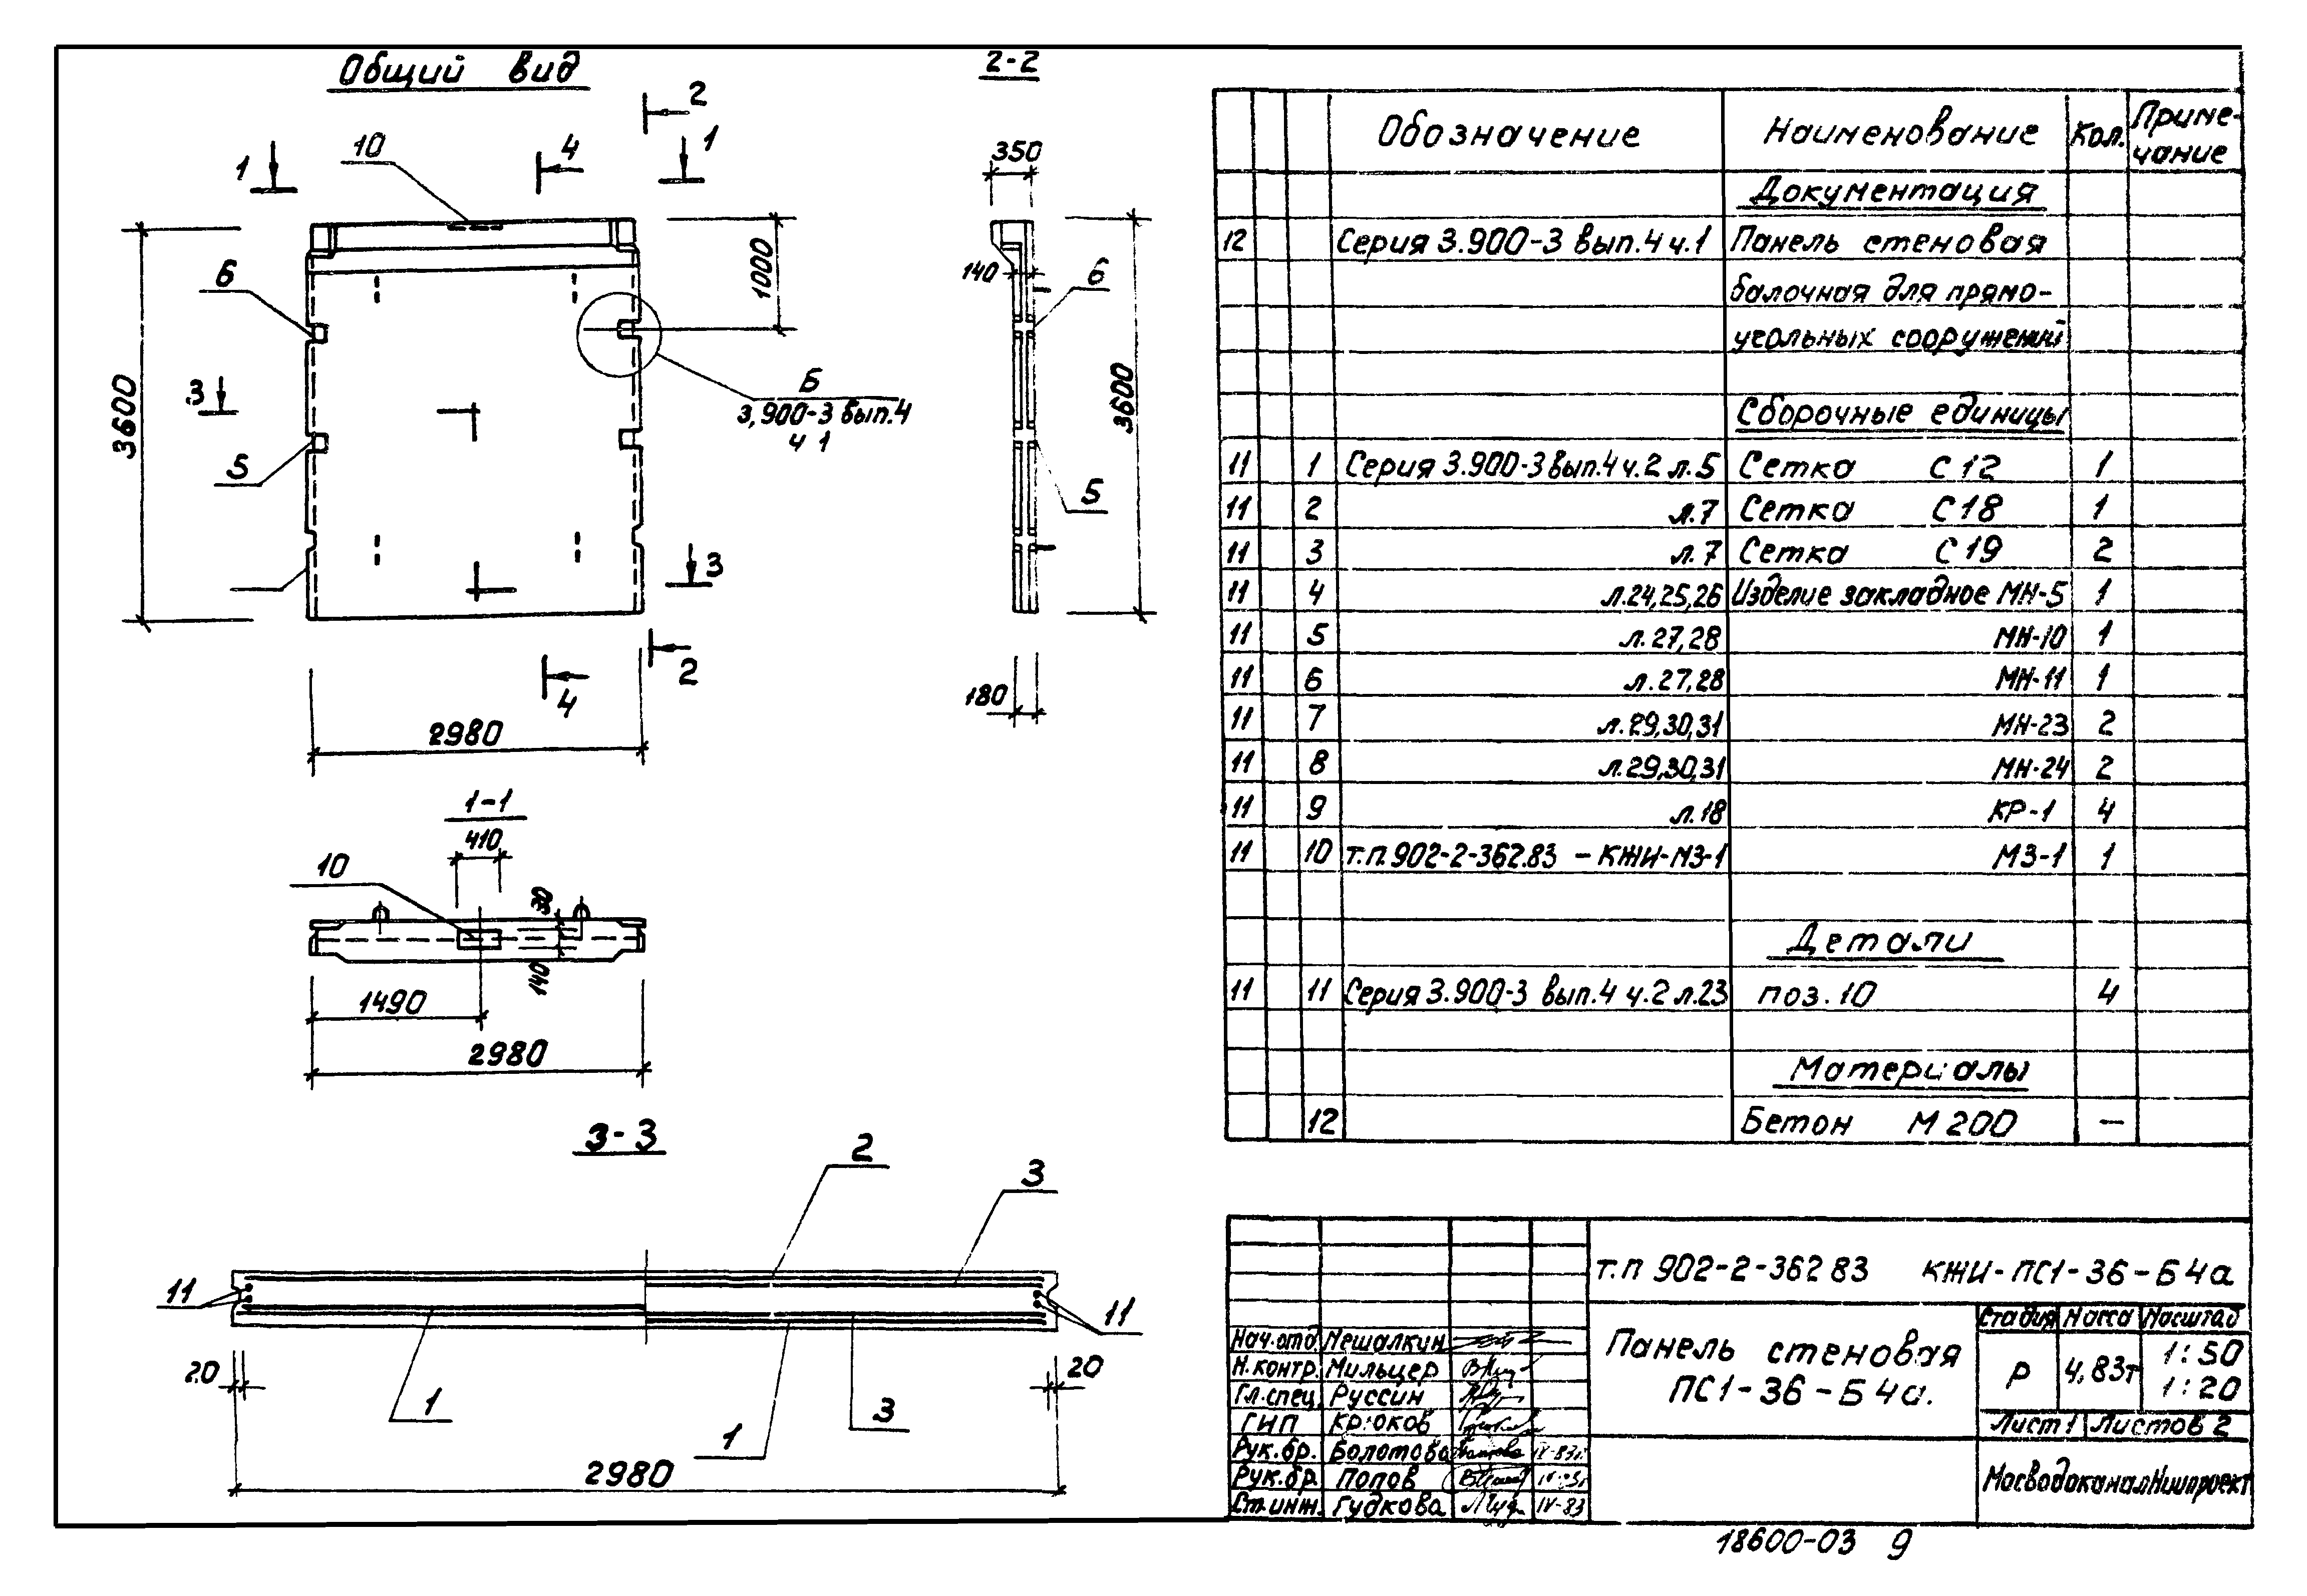 Общий вид
2-2
2
1
10
4
1
350
6
1000
140
6
3600
3
Б
3.900-3 вып.4
ч 1
3600
5
5
3
4
2
180
2980
1-1
410
10
30
140
1490
2980
3-3
2
3
11
11
20
1
1
3
20
2980
Обозначение Наименование Кол. Приме-
чание
Документация
12 Серия 3.900-3 вып.4 ч.1 Панель стеновая
балочная для прямо-
угольных сооружений
Сборочные единицы
11 1 Серия 3.900-3 вып.4 ч.2 л.5 Сетка С12 1
11 2 л.7 Сетка С18 1
11 3 л.7 Сетка С19 2
11 4 л.24,25,26 Изделие закладное МН-5 1
11 5 л.27,28 МН-10 1
11 6 л.27,28 МН-11 1
11 7 л.29,30,31 МН-23 2
11 8 л.29,30,31 МН-24 2
11 9 л.18 КР-1 4
11 10 т.п.902-2-362.83 - КЖИ-МЗ-1 МЗ-1 1
Детали
11 11 Серия 3.900-3 вып.4 ч.2 л.23 поз.10 4
Материалы
12 Бетон М200 —
т.п 902-2-362 83 КЖИ-ПС1-36-Б4а
Стадия Масса Масштаб
Панель стеновая
ПС1-36-Б4а.
Р 4,83т 1:50
1:20
Лист 1 Листов 2
МосводоканалНИИпроект
Нач.отд. Мешалкин
Н.контр. Мильцер
Гл.спец. Руссин
ГИП Крюков
Рук.бр. Болотова IV-83г.
Рук.бр Попов
Ст.инж. Гудкова IV-83
18600-03 9